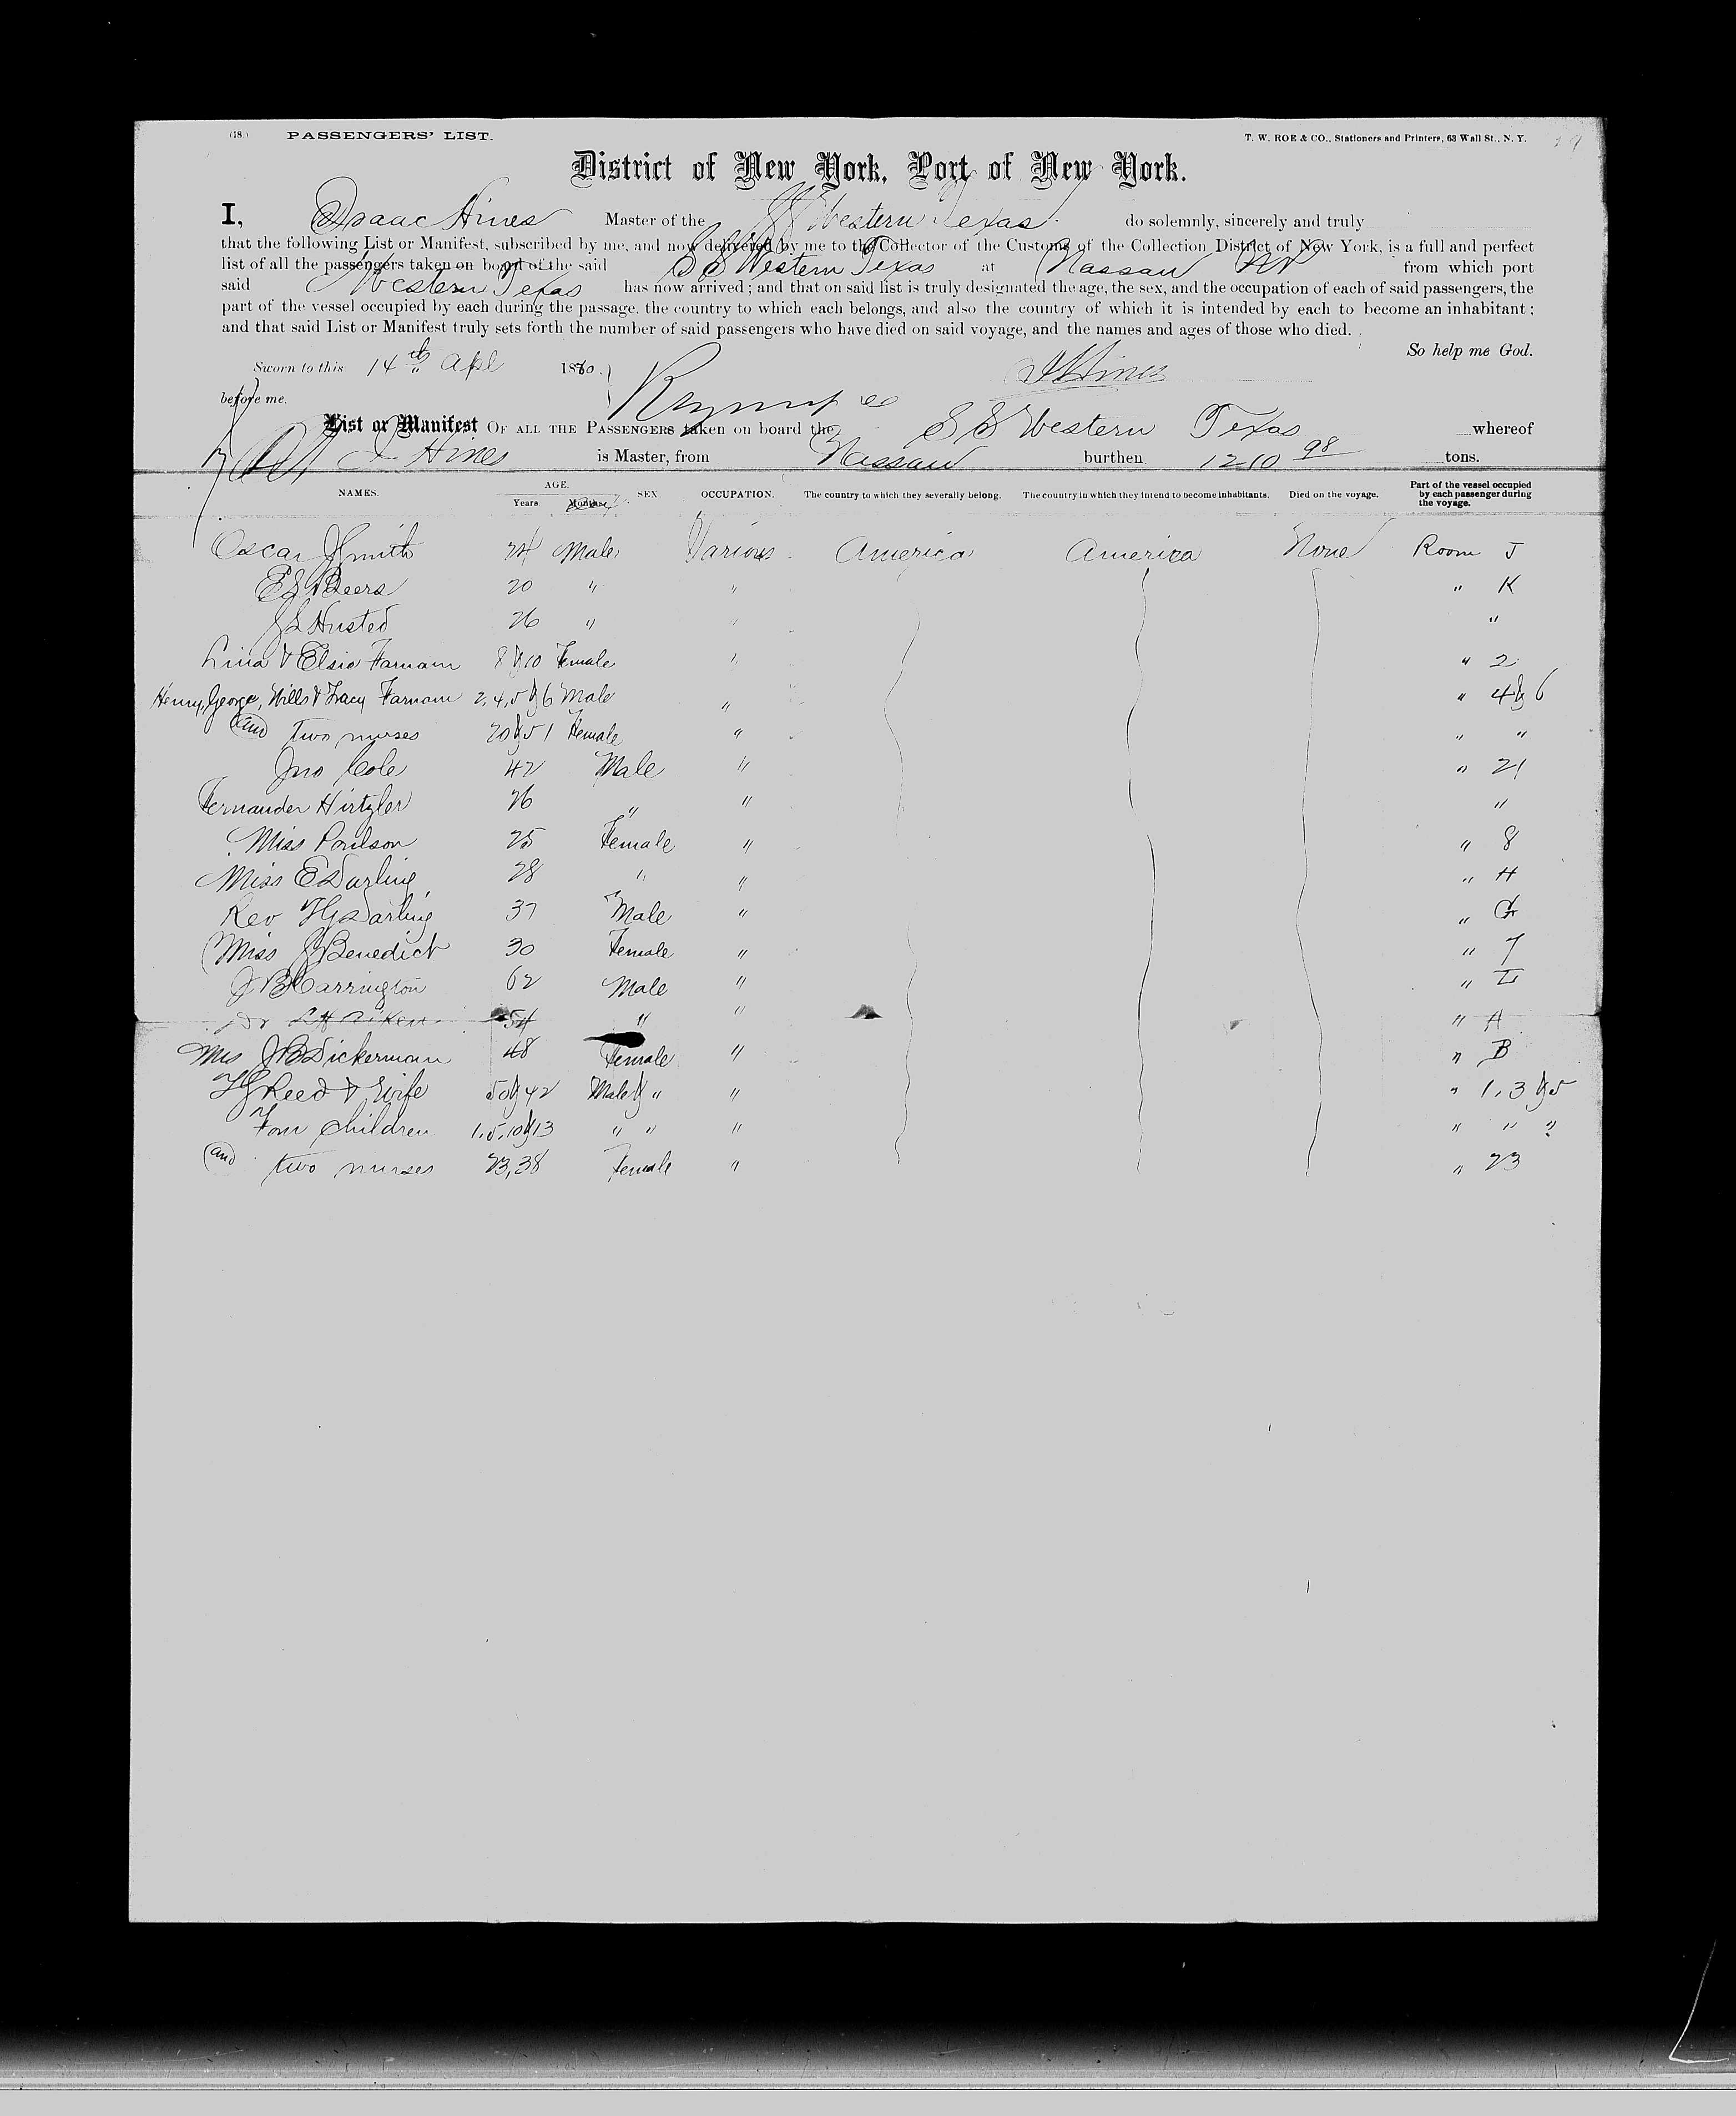 (18.) PASSENGERS' LIST. T. W. ROE & CO., Stationers and Printers, 63 Wall St., N. Y.
District of New York, Port of New York.
I, Isaac Hines Master of the SS Western Texas do solemnly, sincerely and truly
that the following List or Manifest, subscribed by me, and now delivered by me to the Collector of the Customs of the Collection District of New York, is a full and perfect
list of all the passengers taken on board of the said SS Western Texas at Nassau NP from which port
said SS Western Texas has now arrived; and that on said list is truly designated the age, the sex, and the occupation of each of said passengers, the
part of the vessel occupied by each during the passage, the country to which each belongs, and also the country of which it is intended by each to become an inhabitant;
and that said List or Manifest truly sets forth the number of said passengers who have died on said voyage, and the names and ages of those who died.
So help me God.
Sworn to this 14th Apl 1880.
I Hines
before me,
List or Manifest OF ALL THE PASSENGERS taken on board the SS Western Texas whereof
I Hines is Master, from Nassau burthen 1210 98 tons.
NAMES. AGE. Years Months SEX. OCCUPATION. The country to which they severally belong. The country in which they intend to become inhabitants. Died on the voyage. Part of the vessel occupied by each passenger during the voyage.
Oscar J Smith 24 Male Various America America None Room J
E S Beers 20 " " " K
J S Husted 26 " " "
Lina & Elsie Farnam 8 & 10 Female " " 2
Henry, George, Wills & Tracy Farnam 2, 4, 5 & 6 Male " " 4 & 6
and two nurses 20 & 51 Female " " "
Jno Cole 42 Male " " 21
Fernander Hirtzler 26 " " "
Miss Poulson 25 Female " " 8
Miss E Darling 28 " " " H
Rev H G Darling 37 Male " " G
Miss J Benedict 30 Female " " 7
J B Carrington 62 Male " " L
Dr 54 " " " A
Mrs J B Dickerman 48 Female " " B
H G Reed & Wife 50 & 42 Male & " " " 1, 3 & 5
Four Children 1, 5, 10 & 13 " " " " " "
and two nurses 23, 38 Female " " 23